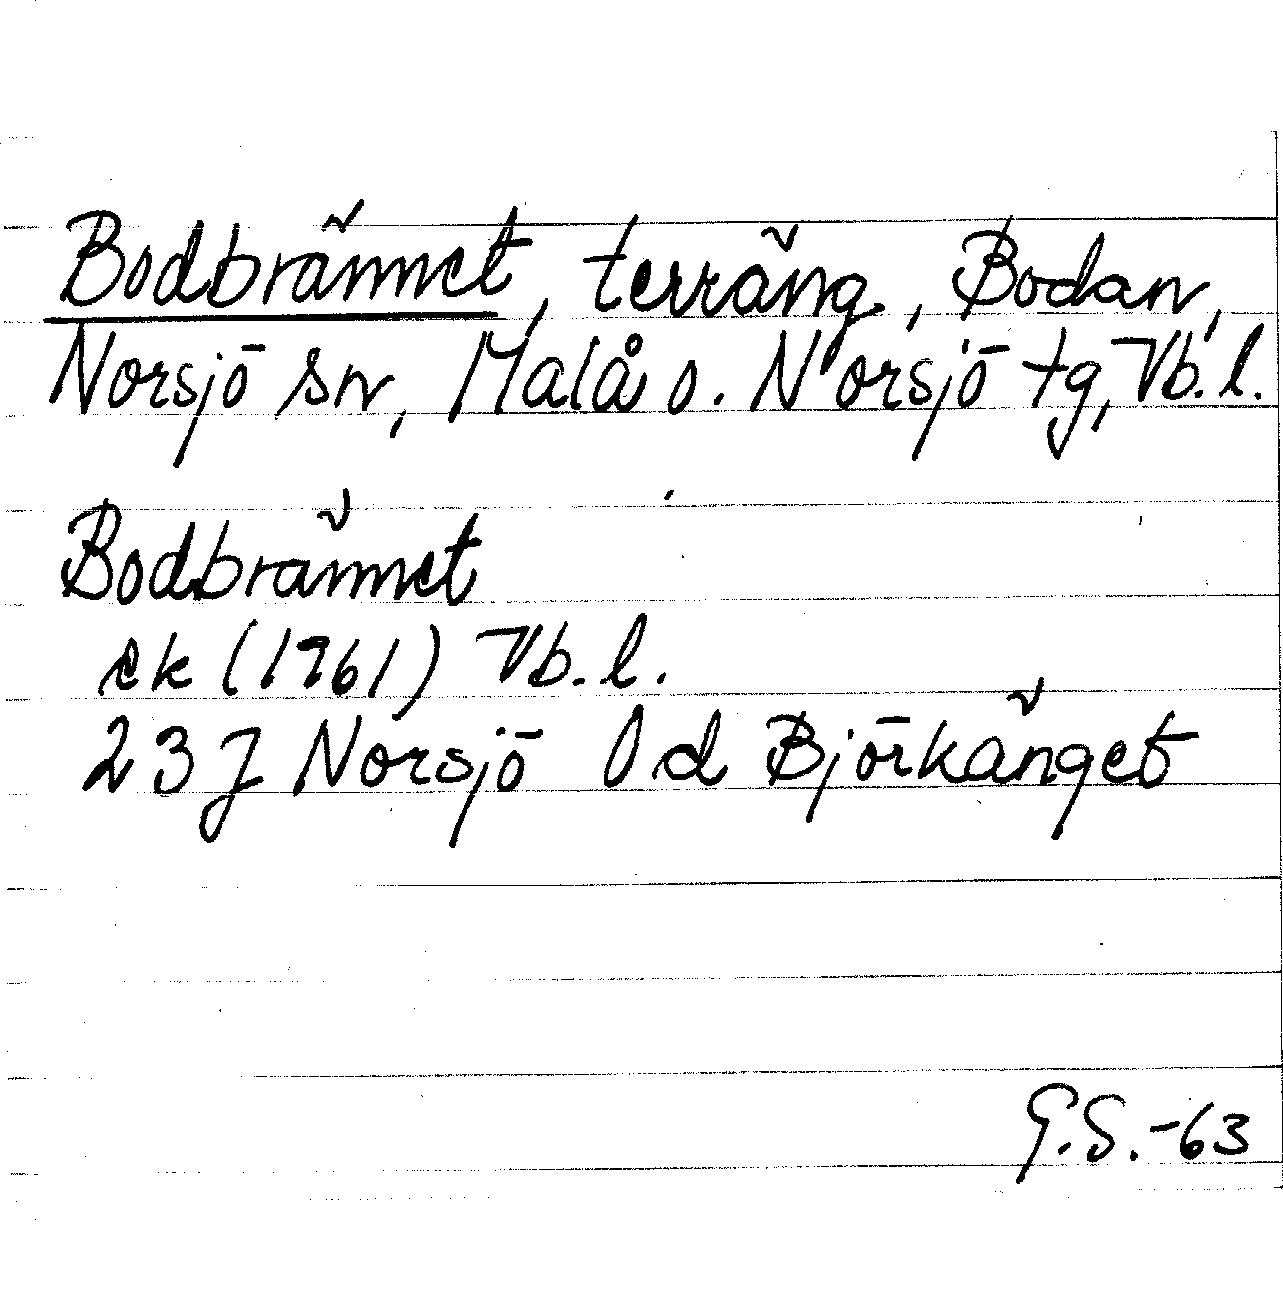 Bodbrännet, terräng, Bodan,
Norsjö sn, Malå o. Norsjö tg, Vb. l.
Bodbrännet
ek (1961) Vb. l.
23 J Norsjö 0 d Björkänget
G.S.-63